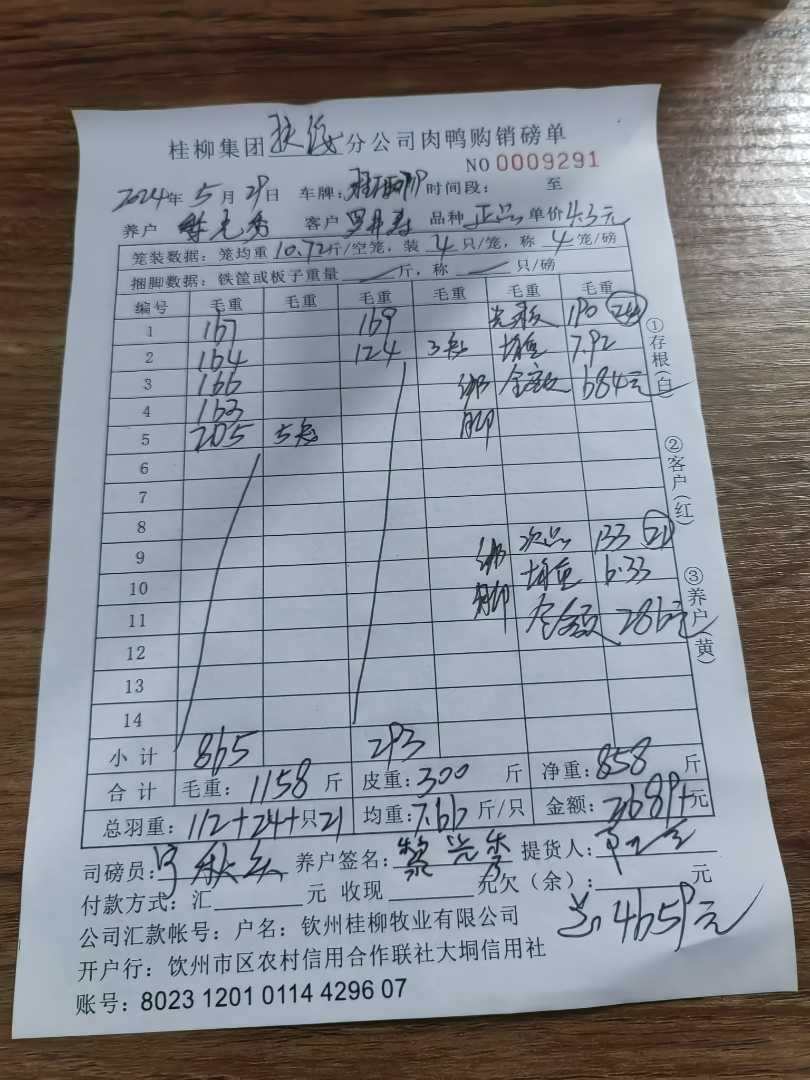 桂柳集团 分公司肉鸭购销磅单
NO 0009291
2024年 5月 29日 车牌: 时间段: 至
养户 客户 品种 正品 单价 4.3元
笼装数据: 笼均重 10.72斤/空笼, 装 4 只/笼, 称 4 笼/磅
捆脚数据: 铁筐或板子重量 斤, 称 只/磅
编号 毛重 毛重 毛重 毛重 毛重 毛重
1 167 169 190 24
2 164 124 3 均重 7.92
3 166 绑 金额 684元
4 163 脚
5 205 5
6
7
8
9 绑 次品 133 21
10 脚 均重 6.33
11 金额 286元
12
13
14
小计 865 293
合计 毛重: 1158 斤 皮重: 300 斤 净重: 858 斤
总羽重: 112+24+只21 均重: 7.66 斤/只 金额: 3689+元
司磅员: 养户签名: 提货人:
付款方式: 汇 元 收现 元欠(余): 元
公司汇款帐号: 户名: 钦州桂柳牧业有限公司
总4659元
开户行: 钦州市区农村信用合作联社大垌信用社
账号: 8023 1201 0114 4296 07
①存根(白)
②客户(红)
③养户(黄)